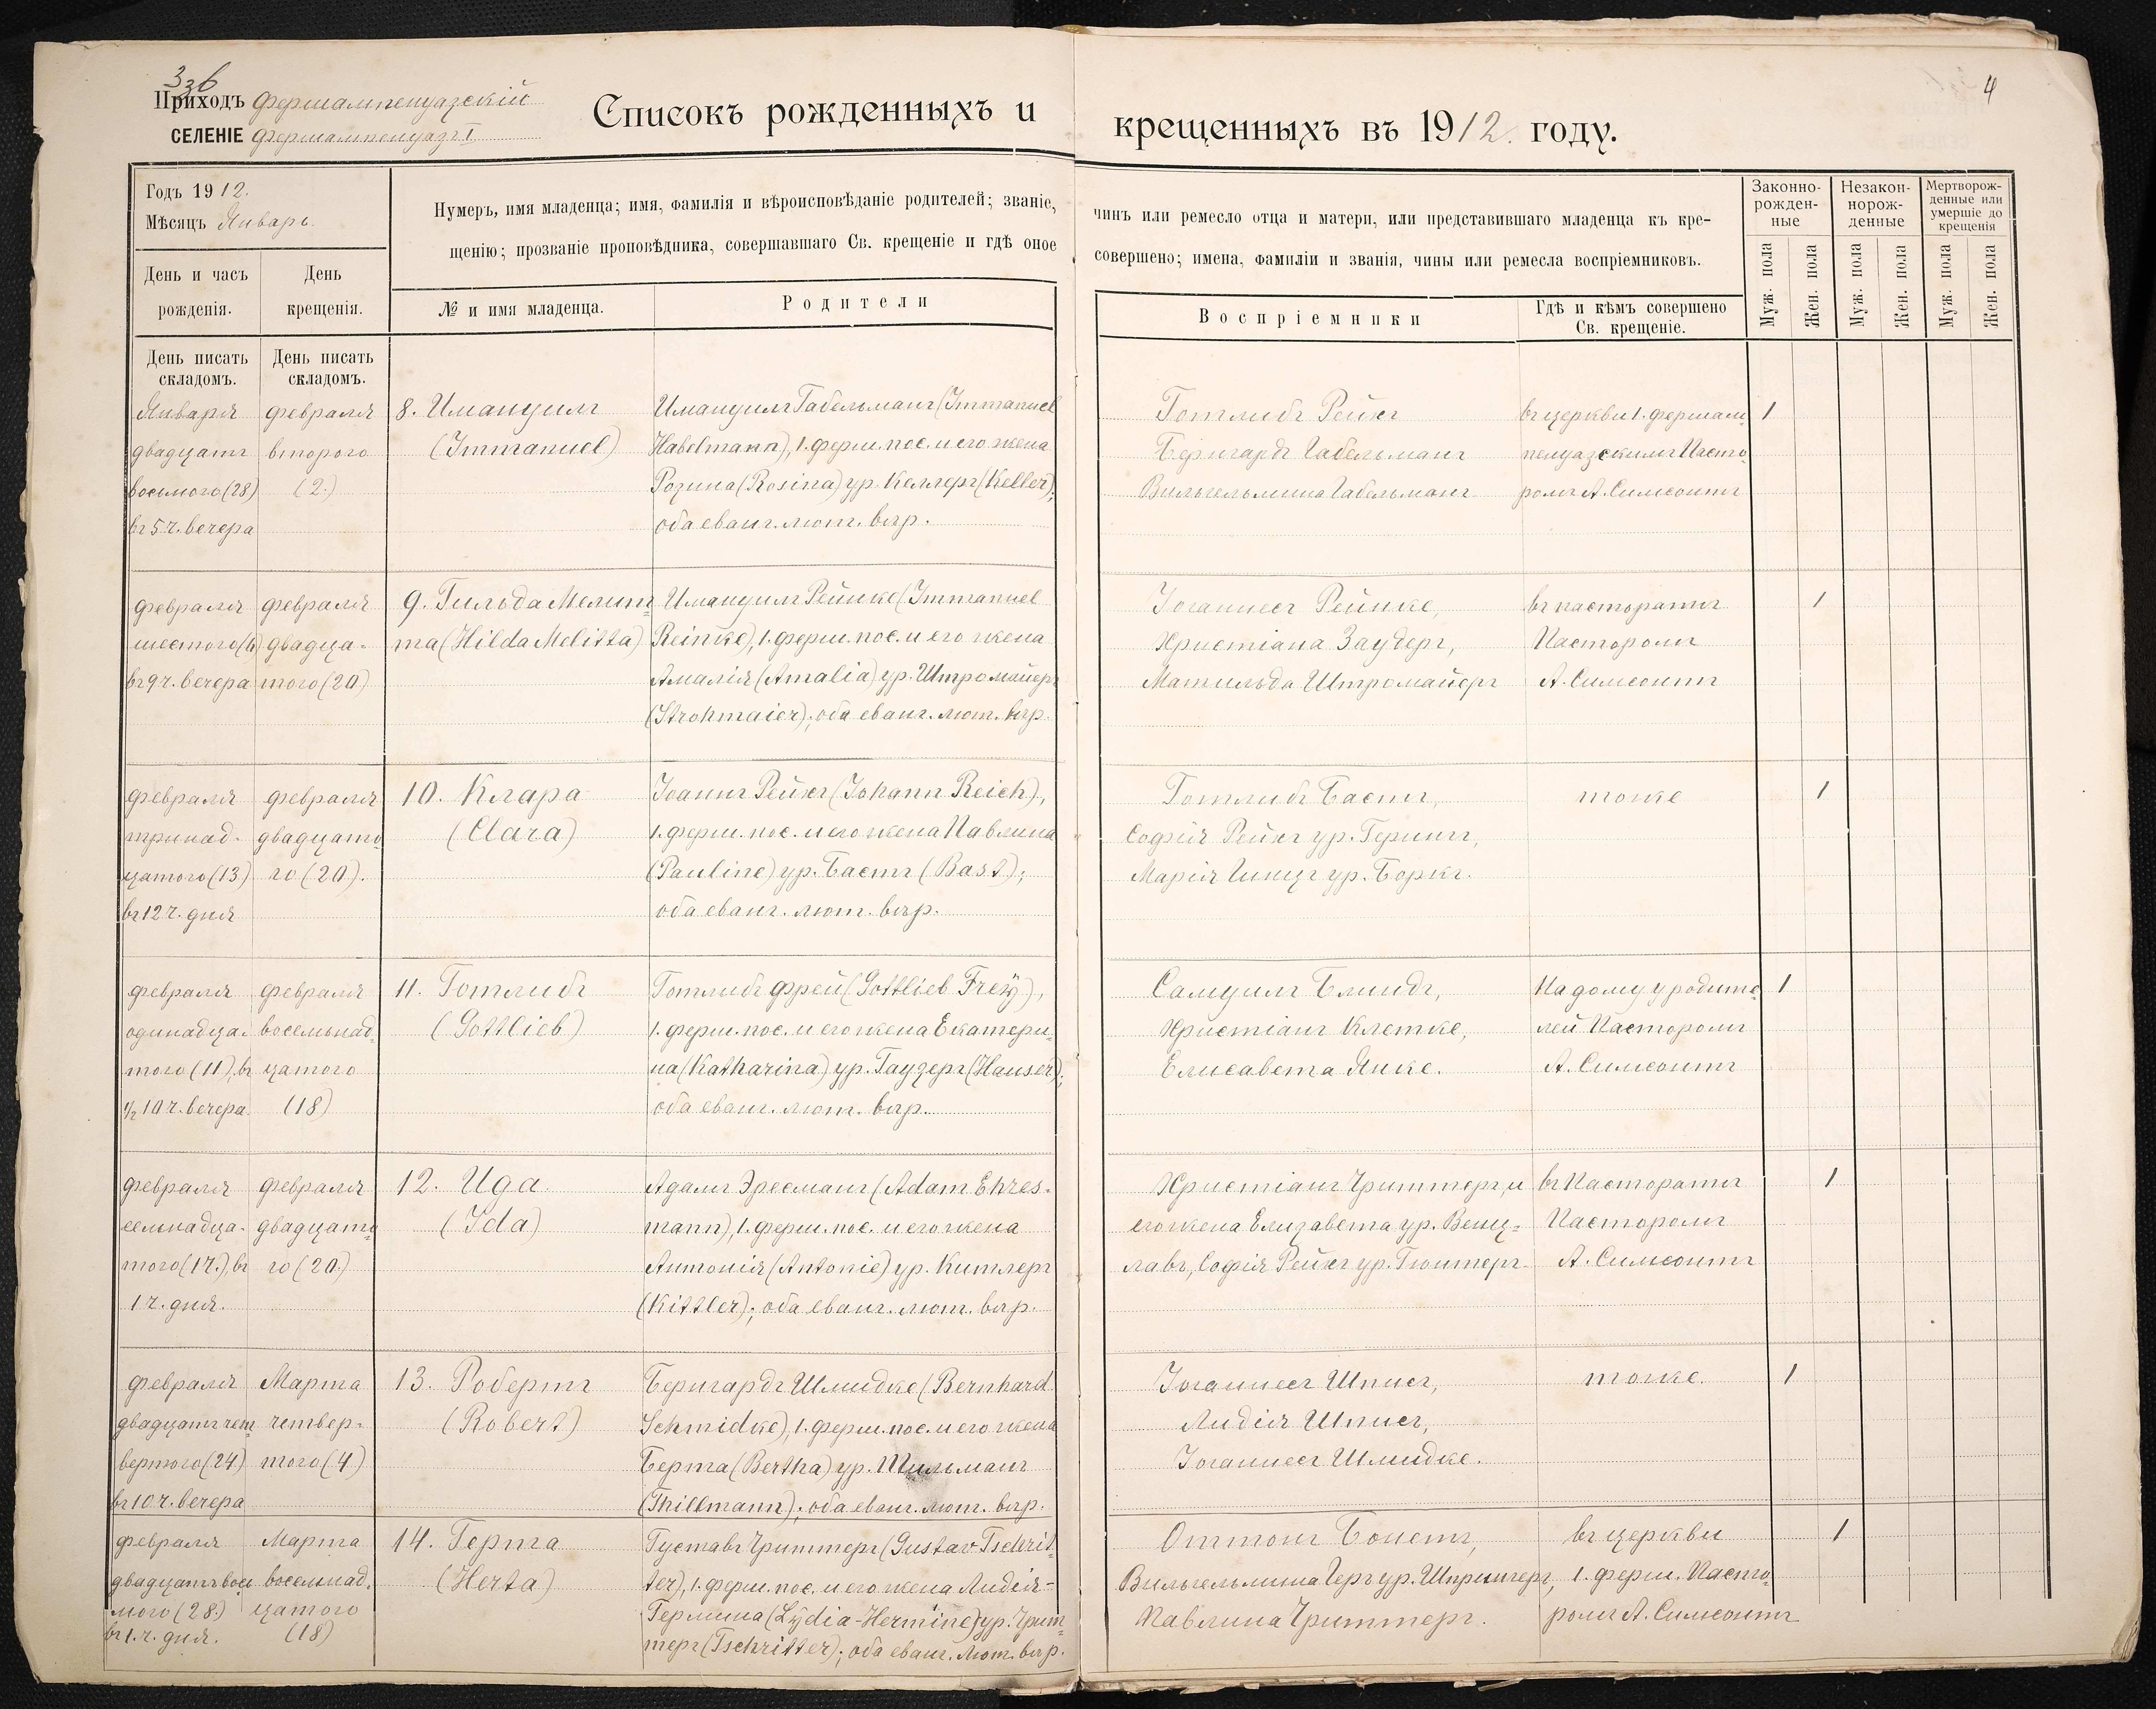 3зб
Приходъ Фершампенуазскій
СЕЛЕНІЕ Фершампенуазъ I
Списокъ рожденныхъ и
крещенныхъ въ 1912 году.
4
Годъ 1912.
Мѣсяцъ Январь.
День и часъ рожденія.
День крещенія.
Нумеръ, имя младенца; имя, фамилія и вѣроисповѣданіе родителей; званіе,
щенію; прозваніе проповѣдника, совершавшаго Св. крещеніе и гдѣ оное
№ и имя младенца.
Родители
чинъ или ремесло отца и матери, или представившаго младенца къ кре-
совершено; имена, фамиліи и званія, чины или ремесла воспріемниковъ.
Воспріемники
Гдѣ и кѣмъ совершено
Св. крещеніе.
Законно-
рожден-
ные
Незакон-
норож-
денные
Мертворож-
денные или
умершіе до
крещенія
Муж. пола
Жен. пола
Муж. пола
Жен. пола
Муж. пола
Жен. пола
День писать
складомъ.
День писать
складомъ.
Января
двадцать
восьмого (28)
въ 5 ч. вечера
февраля
второго
(2.)
8. Имануилъ
(Immanuel)
Имануилъ Габельманъ (Immanuel
Habelmann), 1. ферш. пос. и его жена
Розина (Rosina) ур. Келлеръ (Keller);
оба еванг. лют. вѣр.
Готлибъ Рейхъ
Бернгардъ Габельманъ
Вильгельмина Габельманъ
въ церкви 1. фершам-
пенуазскимъ Пасто-
ромъ А. Симсонтъ
1
февраля
шестого (6)
въ 9 ч. вечера
февраля
двадца-
того (20)
9. Гильда Мелит-
та (Hilda Melitta)
Имануилъ Рейнке (Immanuel
Reinke), 1. ферш. пос. и его жена
Амалія (Amalia) ур. Штромайеръ
(Strohmaier); оба еванг. лют. вѣр.
Іоганнесъ Рейнке,
Христіана Зауберъ,
Матильда Штромайеръ
въ пасторатѣ
Пасторомъ
А. Симсонтъ
1
февраля
тринад-
цатого (13)
въ 12 ч. дня
февраля
двадцато-
го (20).
10. Клара
(Clara)
Іоаннъ Рейхъ (Johann Reich),
1. ферш. пос. и его жена Павлина
(Pauline) ур. Бастъ (Bast);
оба еванг. лют. вѣр.
Готлибъ Бастъ,
Софія Рейхъ ур. Герингъ,
Марія Гинцъ ур. Боркъ.
тоже
1
февраля
одинадца-
того (11), въ
1/2 10 ч. вечера
февраля
восемьнад-
цатого
(18)
11. Готлибъ
(Gottlieb)
Готлибъ Фрей (Gottlieb Freÿ),
1. ферш. пос. и его жена Екатери-
на (Katharina) ур. Гаузеръ (Hauser);
оба еванг. лют. вѣр.
Самуилъ Блиндъ,
Христіанъ Клетке,
Елисавета Янке.
На дому у родите-
лей Пасторомъ
А. Симсонтъ
1
февраля
семнадца-
того (17.), въ
1 ч. дня.
февраля
двадцато-
го (20.)
12. Ида
(Ida)
Адамъ Эресманъ (Adam Ehres-
mann), 1. ферш. пос. и его жена
Антонія (Antonie) ур. Китлеръ
(Kittler); оба еванг. лют. вѣр.
Христіанъ Чриттеръ, и
его жена Елизавета ур. Венц-
лавъ, Софія Рейхъ ур. Гюнтеръ
въ Пасторатѣ
Пасторомъ
А. Симсонтъ
1
февраля
двадцать чет-
вертого (24)
въ 10 ч. вечера
Марта
четвер-
того (4)
13. Робертъ
(Robert)
Бернгардъ Шмидке (Bernhard
Schmidke), 1. ферш. пос. и его жена
Берта (Bertha) ур. Тильманъ
(Thillmann); оба еванг. лют. вѣр.
Іоганнесъ Шписъ,
Лидія Шписъ,
Іоганнесъ Шмидке.
тоже.
1
февраля
двадцать вось-
мого (28.)
въ 1. ч. дня.
Марта
восемьнад-
цатого
(18)
14. Герта
(Herta)
Густавъ Чриттеръ (Gustav Tschrit-
ter), 1. ферш. пос. и его жена Лидія-
Гермина (Lÿdia-Hermine) ур. Чрит-
теръ (Tschritter); оба еванг. лют. вѣр.
Оттонъ Бонетъ,
Вильгельмина Геръ ур. Шпрингеръ,
Павлина Чриттеръ.
въ церкви
1. ферш. Пасто-
ромъ А. Симсонтъ
1